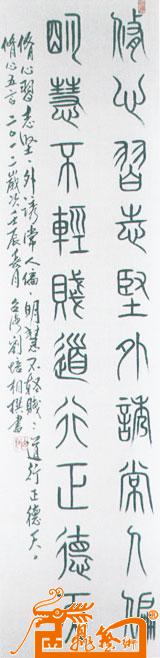 脩心習志堅外誘常人偏
明慧不輕賤道行正德天
脩心習志堅、外誘常人偏 明慧不輕賤、道行正德天。
脩心五言 二〇一二歲次壬辰春月 台灣劉培相撰書